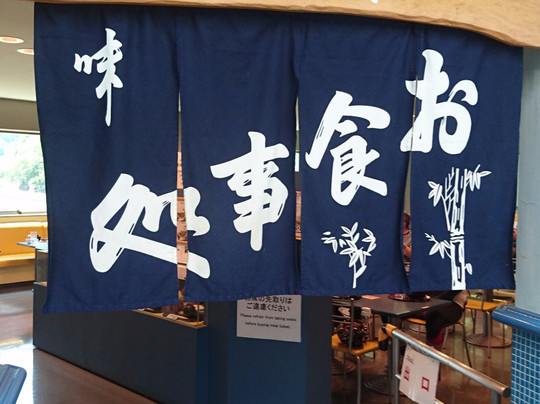 お食事処
味
の先取りは
ご遠慮ください
Please refrain from taking seats
before buying meal ticket.